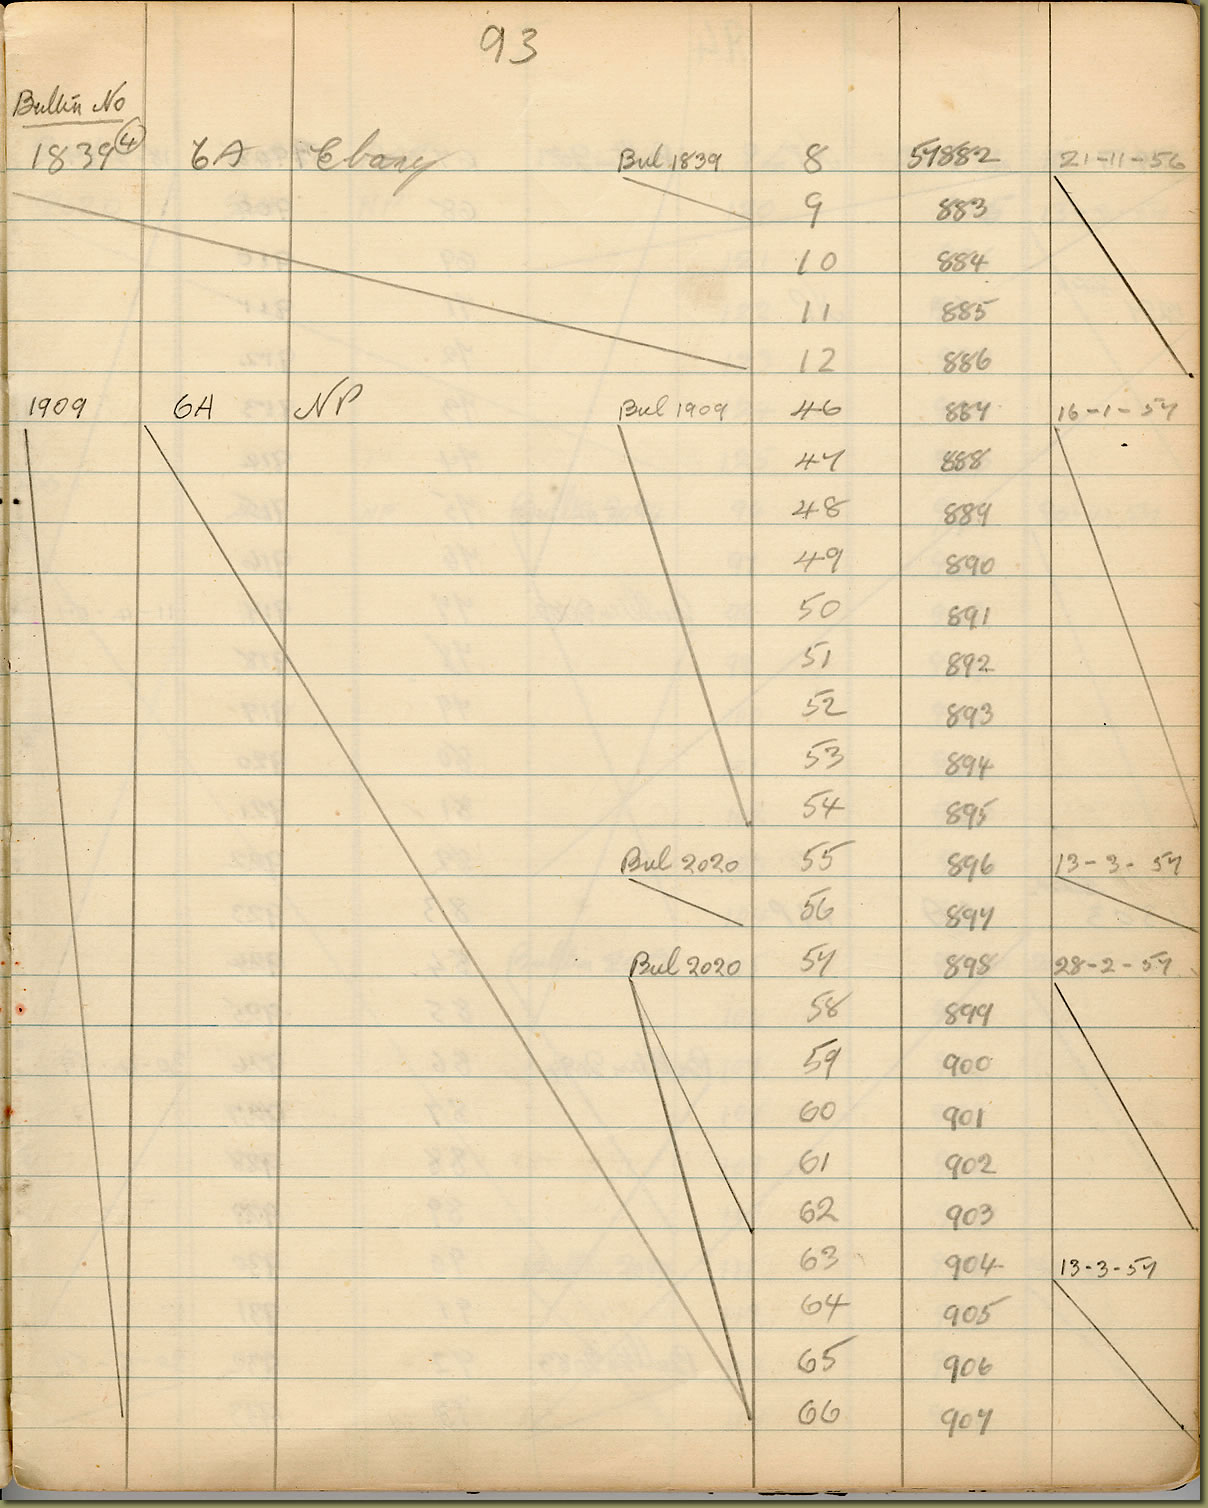 93
Bultin No
1839 4 6A Ebony Bul 1839 8 57882 21-11-56
9 883
10 884
11 885
12 886
1909 6A NP Bul 1909 46 887 16-1-57
47 888
48 889
49 890
50 891
51 892
52 893
53 894
54 895
Bul 2020 55 896 13-3-57
56 897
Bul 2020 57 898 28-2-57
58 899
59 900
60 901
61 902
62 903
63 904 13-3-57
64 905
65 906
66 907